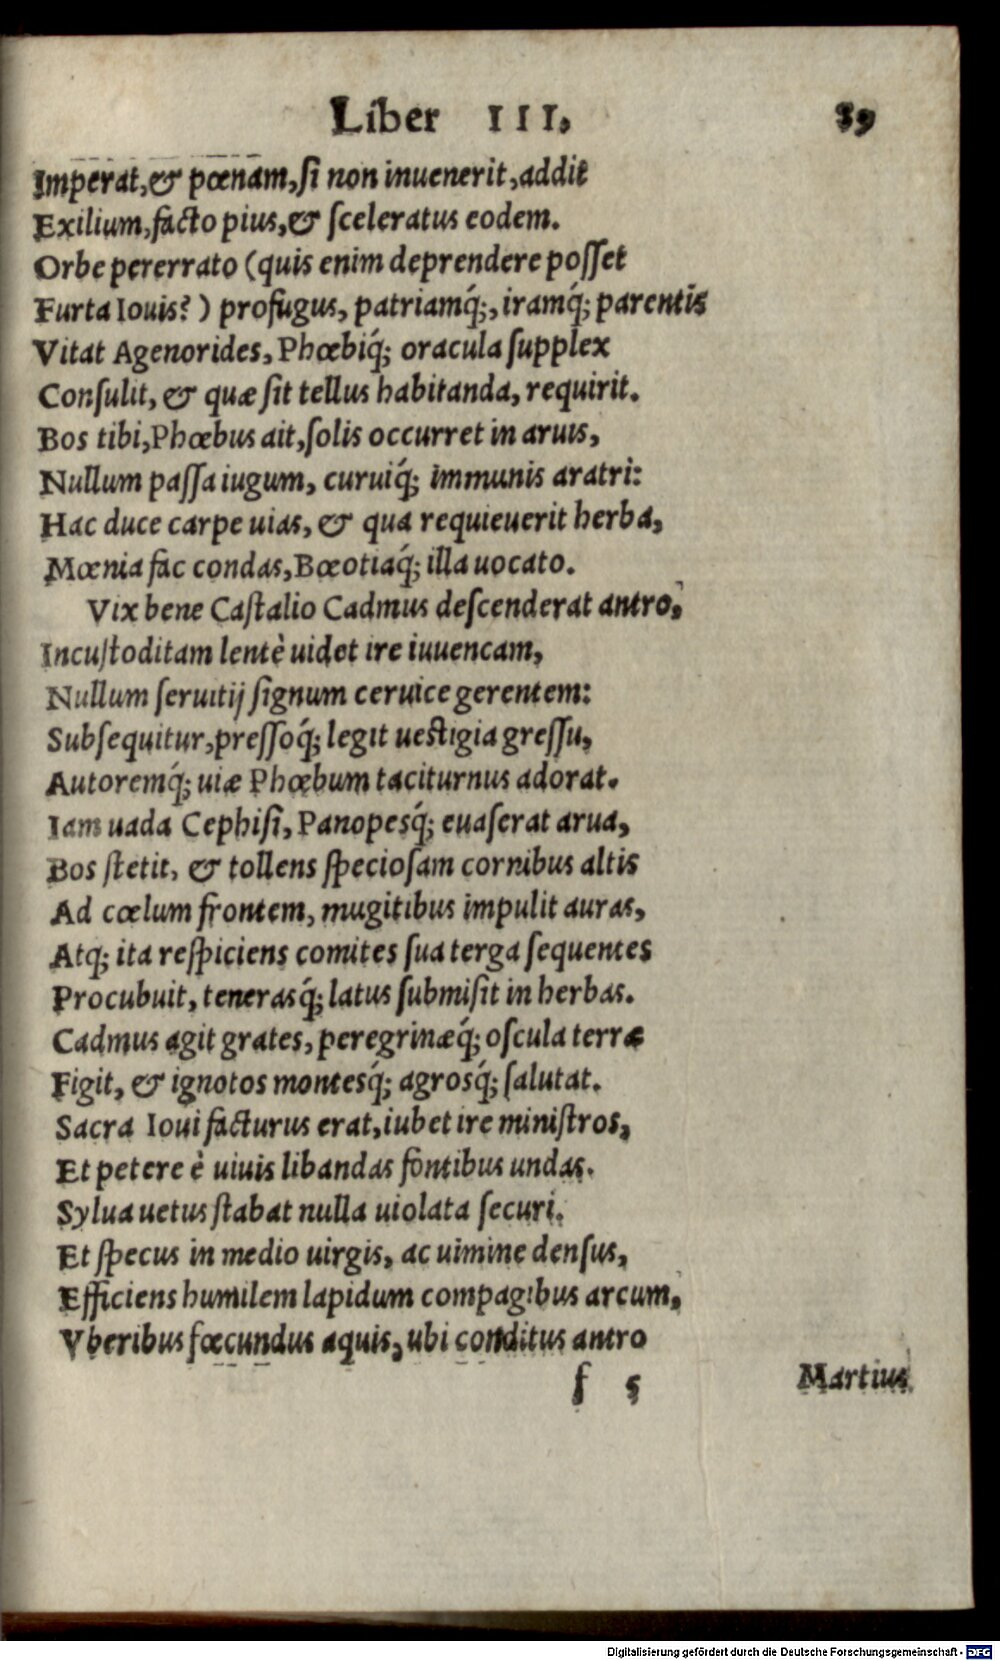 Liber III. 89
Imperat, & pœnam, ſi non inuenerit, addit
Exilium, facto pius, & ſceleratus eodem.
Orbe pererrato (quis enim deprendere poſſet
Furta Iouis?) profugus, patriamq́;, iramq́; parentis
Vitat Agenorides, Phœbiq́; oracula ſupplex
Conſulit, & quæ ſit tellus habitanda, requirit.
Bos tibi, Phœbus ait, ſolis occurret in aruis,
Nullum paſſa iugum, curuiq́; immunis aratri:
Hac duce carpe uias, & qua requieuerit herba,
Mœnia fac condas, Bœotiaq́; illa uocato.
Vix bene Caſtalio Cadmus deſcenderat antro,
Incuſtoditam lentè uidet ire iuuencam,
Nullum ſeruitij ſignum ceruice gerentem:
Subſequitur, preſſoq́; legit ueſtigia greſſu,
Autoremq́; uiæ Phœbum taciturnus adorat.
Iam uada Cephiſi, Panopesq́; euaſerat arua,
Bos ſtetit, & tollens ſpecioſam cornibus altis
Ad cœlum frontem, mugitibus impulit auras,
Atq; ita reſpiciens comites ſua terga ſequentes
Procubuit, tenerasq́; latus ſubmiſit in herbas.
Cadmus agit grates, peregrinæq́; oſcula terræ
Figit, & ignotos montesq́; agrosq́; ſalutat.
Sacra Ioui facturus erat, iubet ire miniſtros,
Et petere è uiuis libandas fontibus undas.
Sylua uetus ſtabat nulla uiolata ſecuri.
Et ſpecus in medio uirgis, ac uimine denſus,
Efficiens humilem lapidum compagibus arcum,
Vberibus fœcundus aquis, ubi conditus antro
f 5 Martius
Digitalisierung gefördert durch die Deutsche Forschungsgemeinschaft - DFG